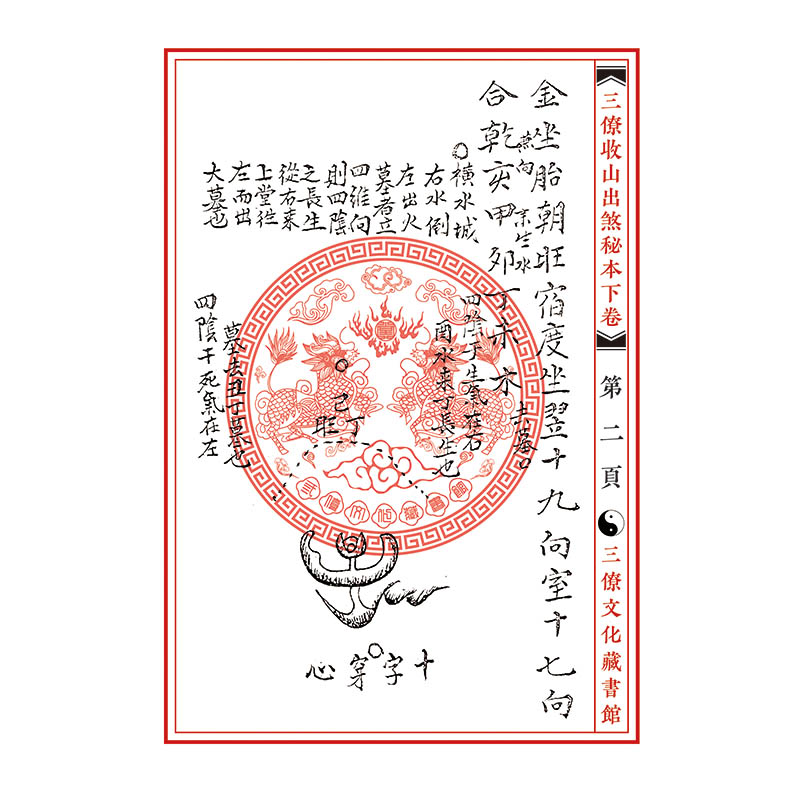 三僚收山出煞秘本下卷
第二頁
三僚文化藏書館
金坐胎朝旺宿度坐翌十九向室十七向
合乾亥甲卯丁未木
庫口
燕向
亲生水
橫水城
右水倒
左出火
墓者立
四維向
則四陰
之長生
從右来
上堂往
左而出
大墓也
四陰丁生氣在右
酉水来丁長生也
己丁
旺
墓去丑丁墓也
四陰干死氣在左
十字穿心